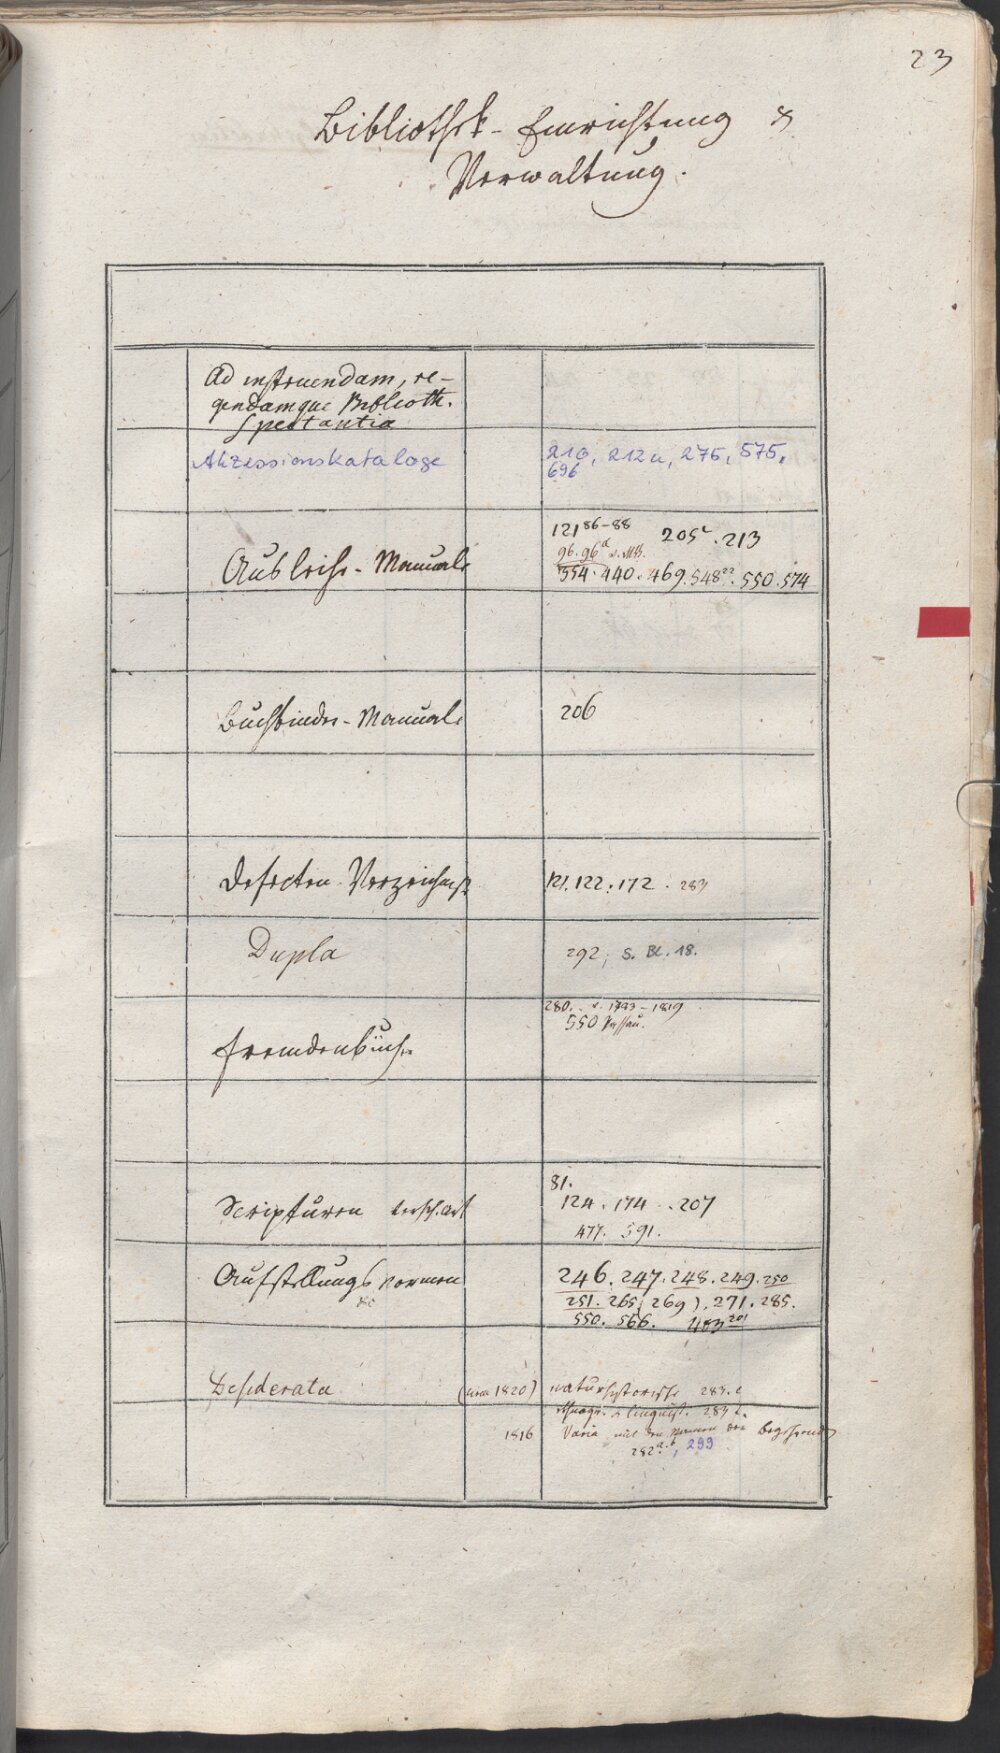 23
Bibliothek-Einrichtung &
Verwaltung.
Ad instruendam, re-
gendamque Biblioth.
spectantia
Akzessionskataloge
210, 212a, 275, 575,
696
121 86-88 205c . 213
96. 96a
Ausleihe-Manuale
354. 440. 469. 548 22. 550. 574
Buchbinder-Manuale
206
Defecten-Verzeichniße
121. 122. 172. 283
Dupla
292, s. Bl. 18.
280. v. 1793-1819
550 Passau.
Fremdenbücher
81.
Scripturen versch. Art
124. 174. 207
477. 591.
Aufstellungsnormen
246. 247. 248. 249. 250
251. 265, (269), 271. 285.
550. 566. 483 201
Desiderata
(circa 1820) naturhistorische 283. c
linguist. 283 b.
1816 Varia mit den Namen der Begehrenden
282 a.b, 299